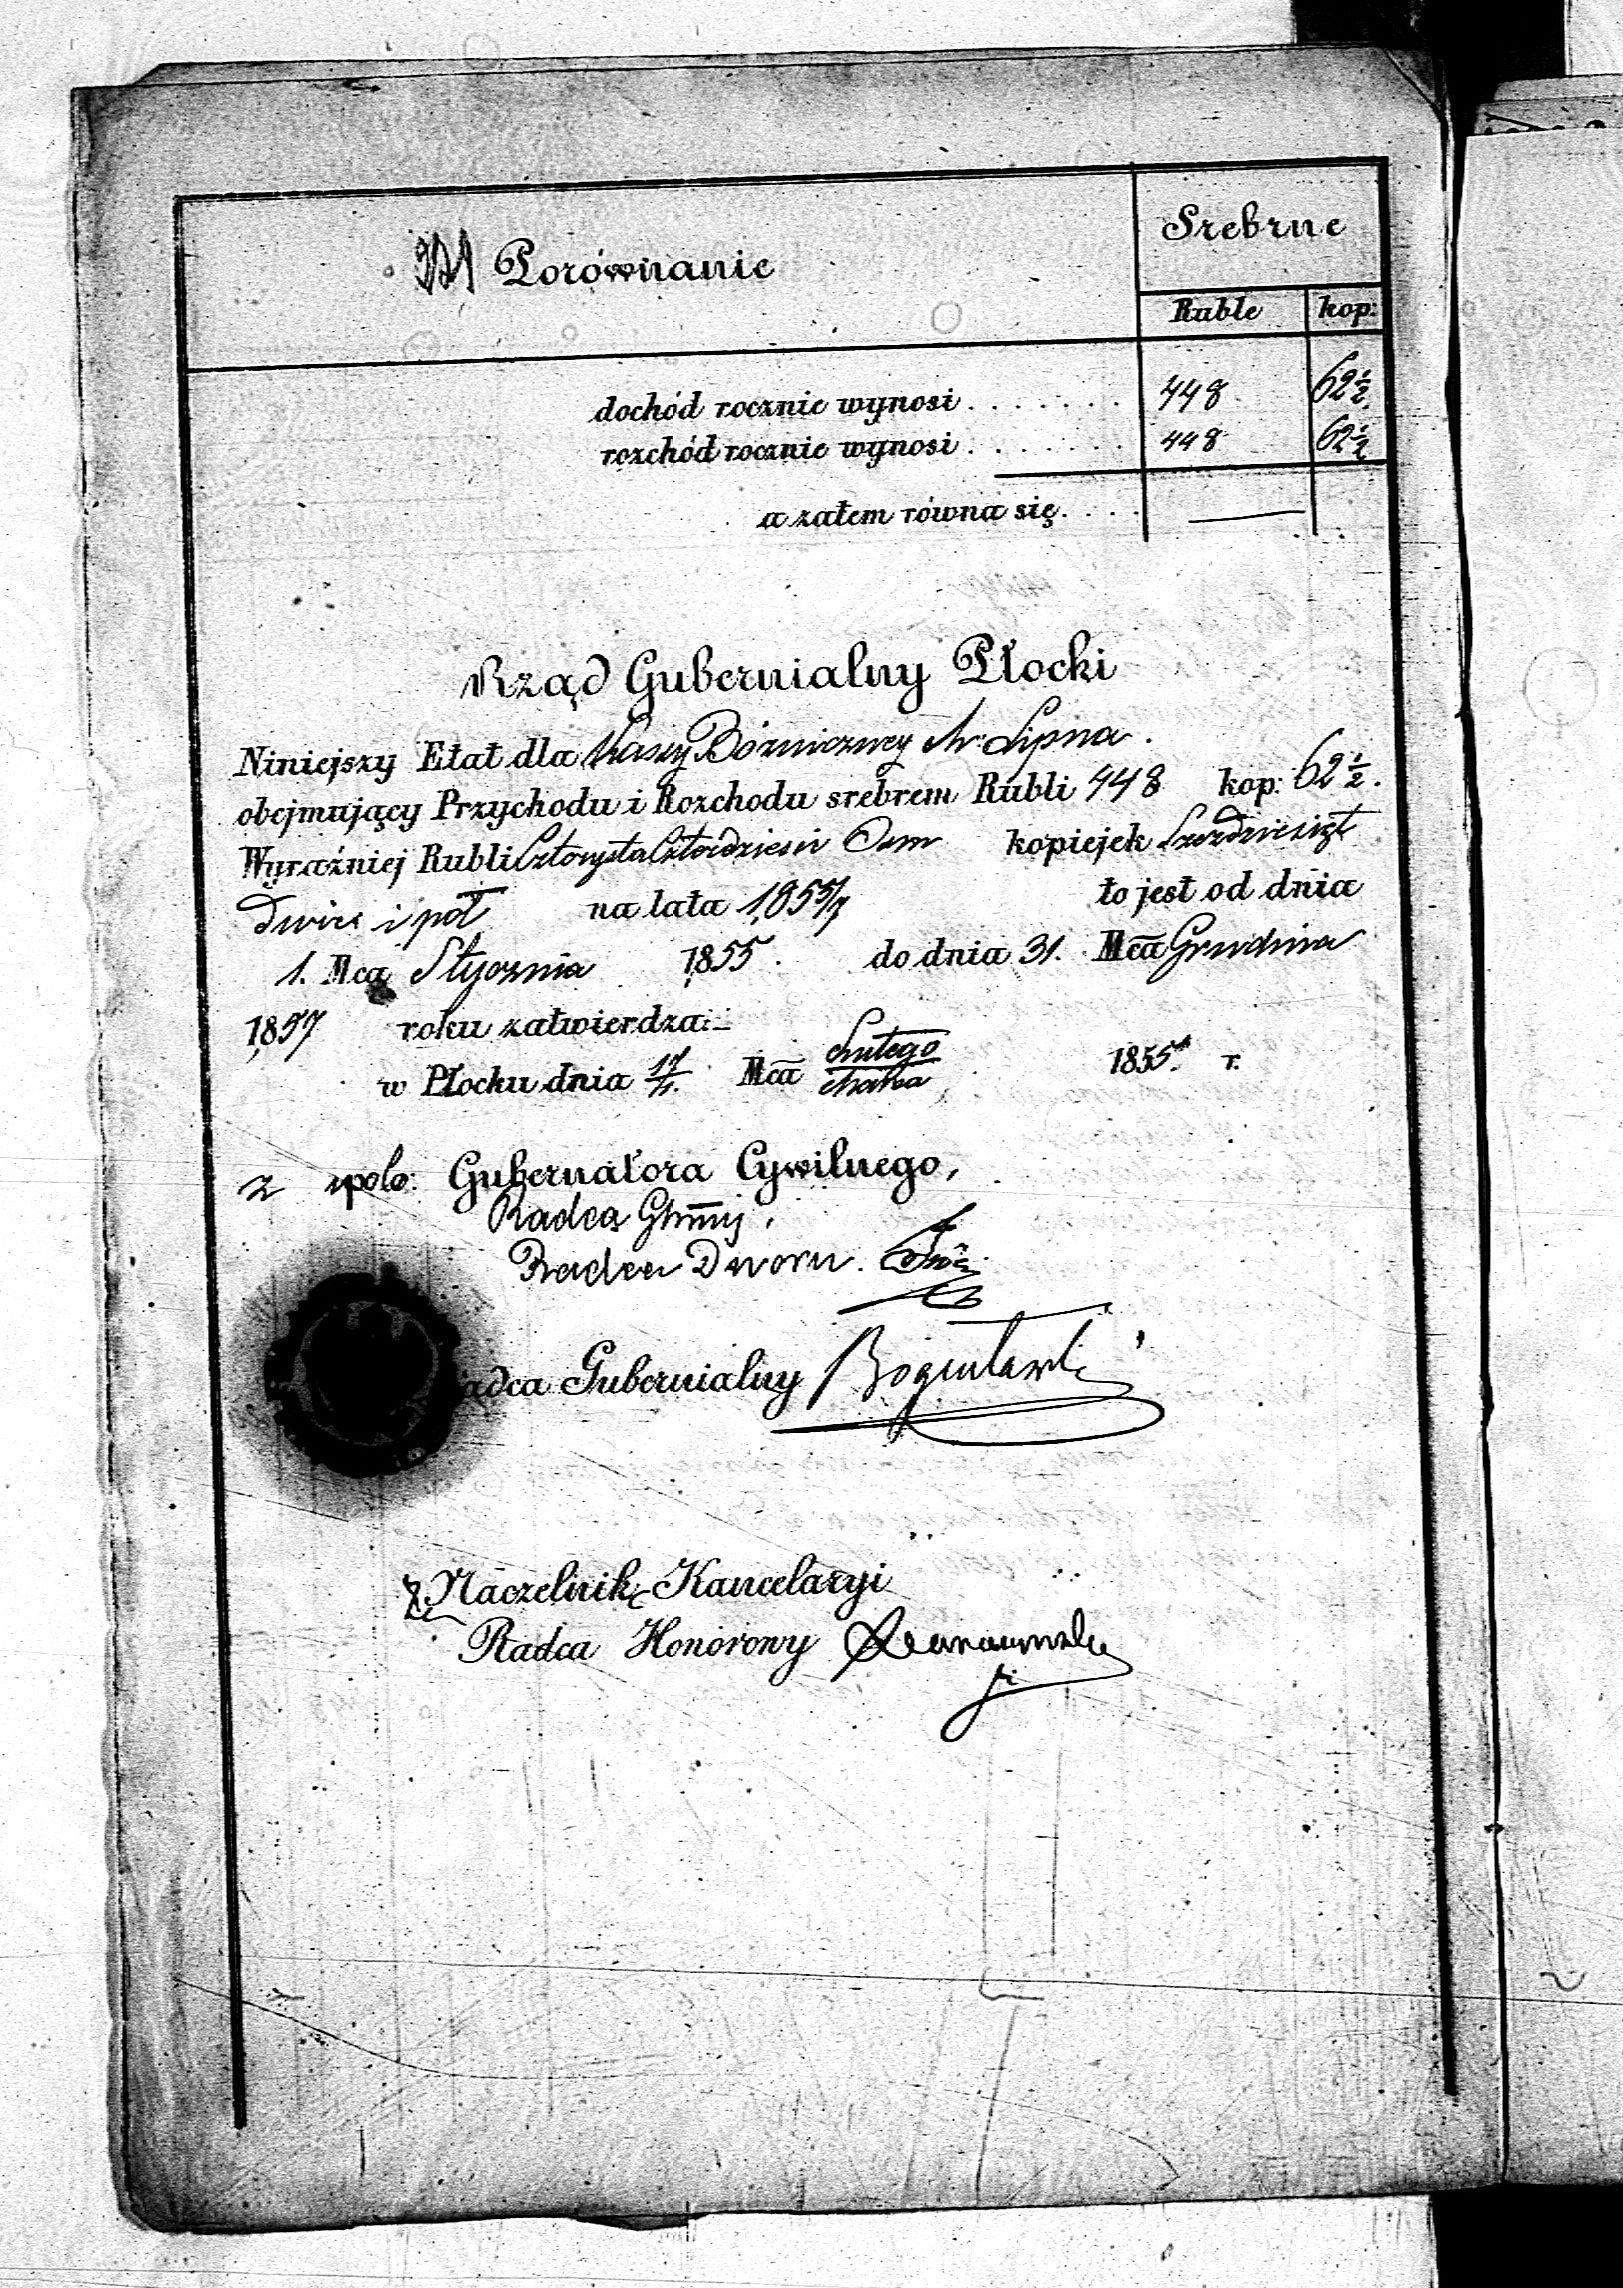 Porównanie
Srebrne
Ruble kop:
dochód rocznie wynosi . . . . . . . 448 62½
rozchód rocznie wynosi . . . . . . . 448 62½
a zatem równa się. . . . —
Rząd Gubernialny Płocki
Niniejszy Etat dla Kassy Bóżniczney M. Lipna.
obejmujący Przychodu i Rozchodu srebrem Rubli 448 kop: 62½.
Wyraźniej Rubli Czterysta Czterdzieści Osm kopiejek Sześdziesiąt
Dwie i pół na lata 1855/7 to jest od dnia
1. Mca Stycznia 1855. do dnia 31. Mca Grudnia
1857 roku zatwierdza:
w Płocku dnia 17/1. Mca Lutego/Marca 1855. r.
z polo: Gubernatora Cywilnego,
Radca
Radca Dworu.
Radca Gubernialny Bogusławski
Naczelnik Kancelaryi
Radca Honorowy